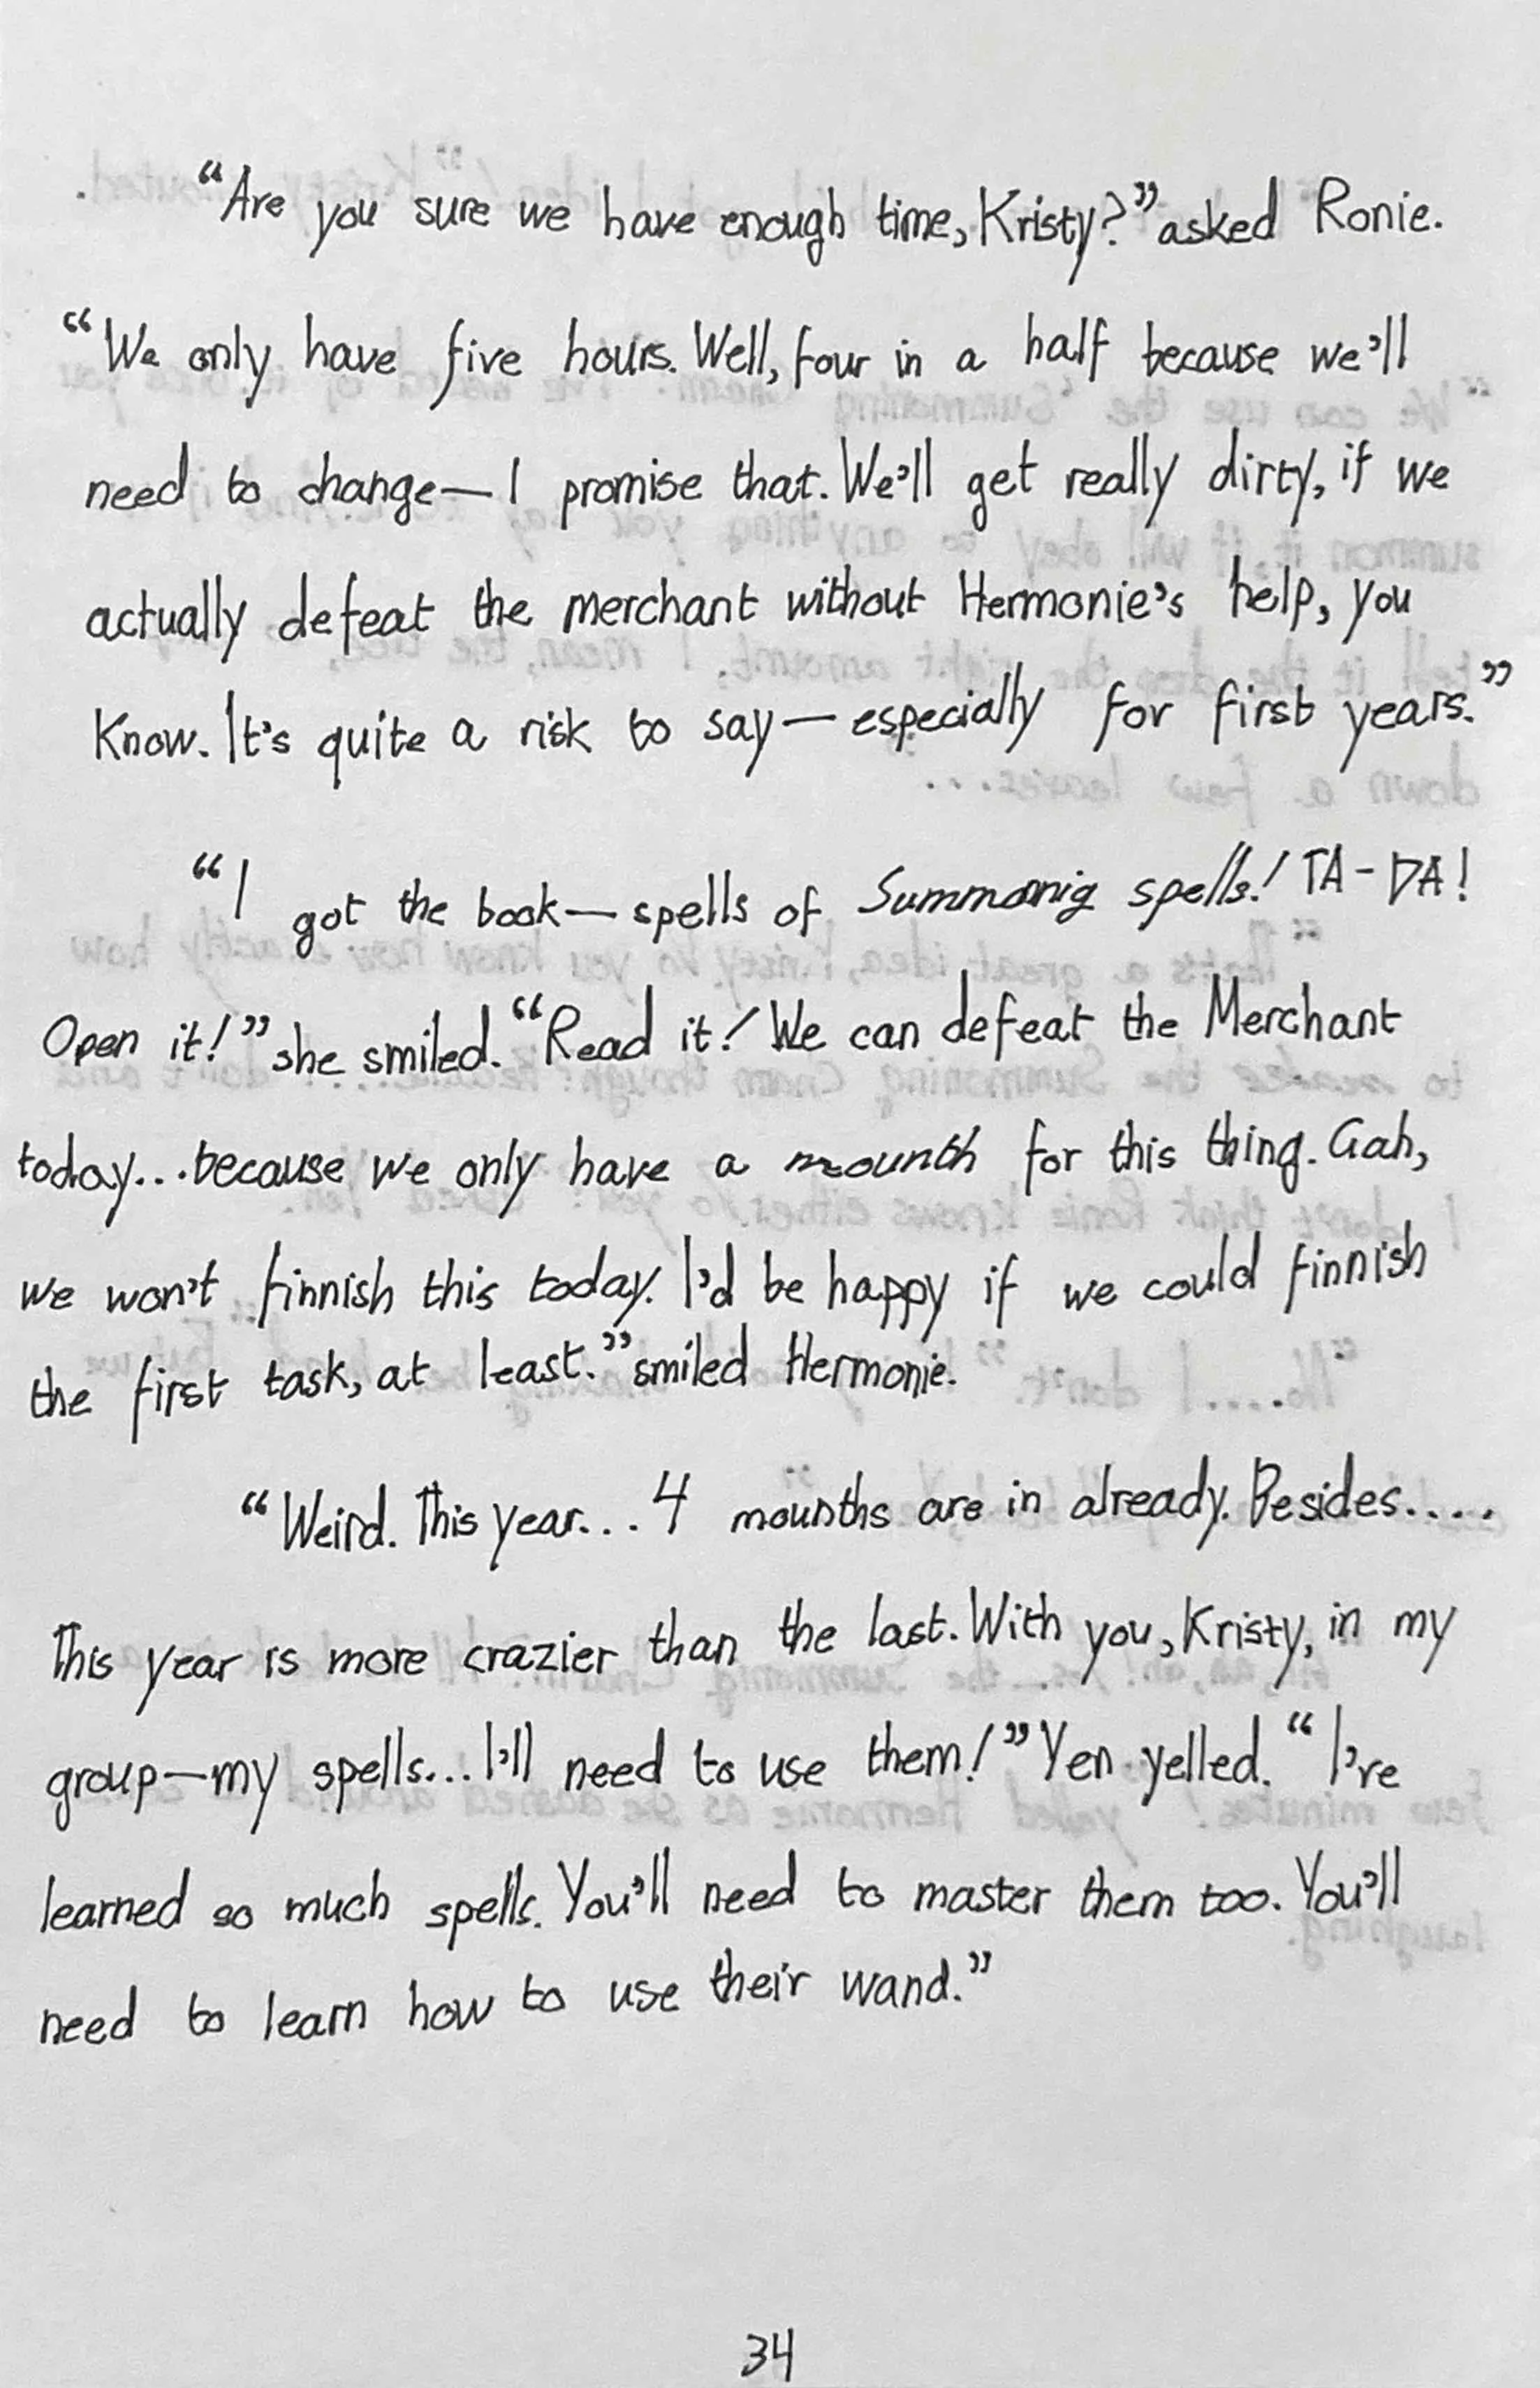 “Are you sure we have enough time, Kristy?” asked Ronie.
“We only have five hours. Well, four in a half because we’ll
need to change—I promise that. We’ll get really dirty, if we
actually defeat the merchant without Hermonie’s help, you
know. It’s quite a risk to say—especially for first years.”
“I got the book—spells of Summonig spells! TA-DA!
Open it!” she smiled. “Read it! We can defeat the Merchant
today...because we only have a mounth for this thing. Gah,
we won’t finnish this today. I’d be happy if we could finnish
the first task, at least.” smiled Hermonie.
“Weird. This year... 4 mounths are in already. Besides.....
This year is more crazier than the last. With you, Kristy, in my
group—my spells... I’ll need to use them!” Yen yelled. “I’ve
learned so much spells. You’ll need to master them too. You’ll
need to learn how to use their wand.”
34